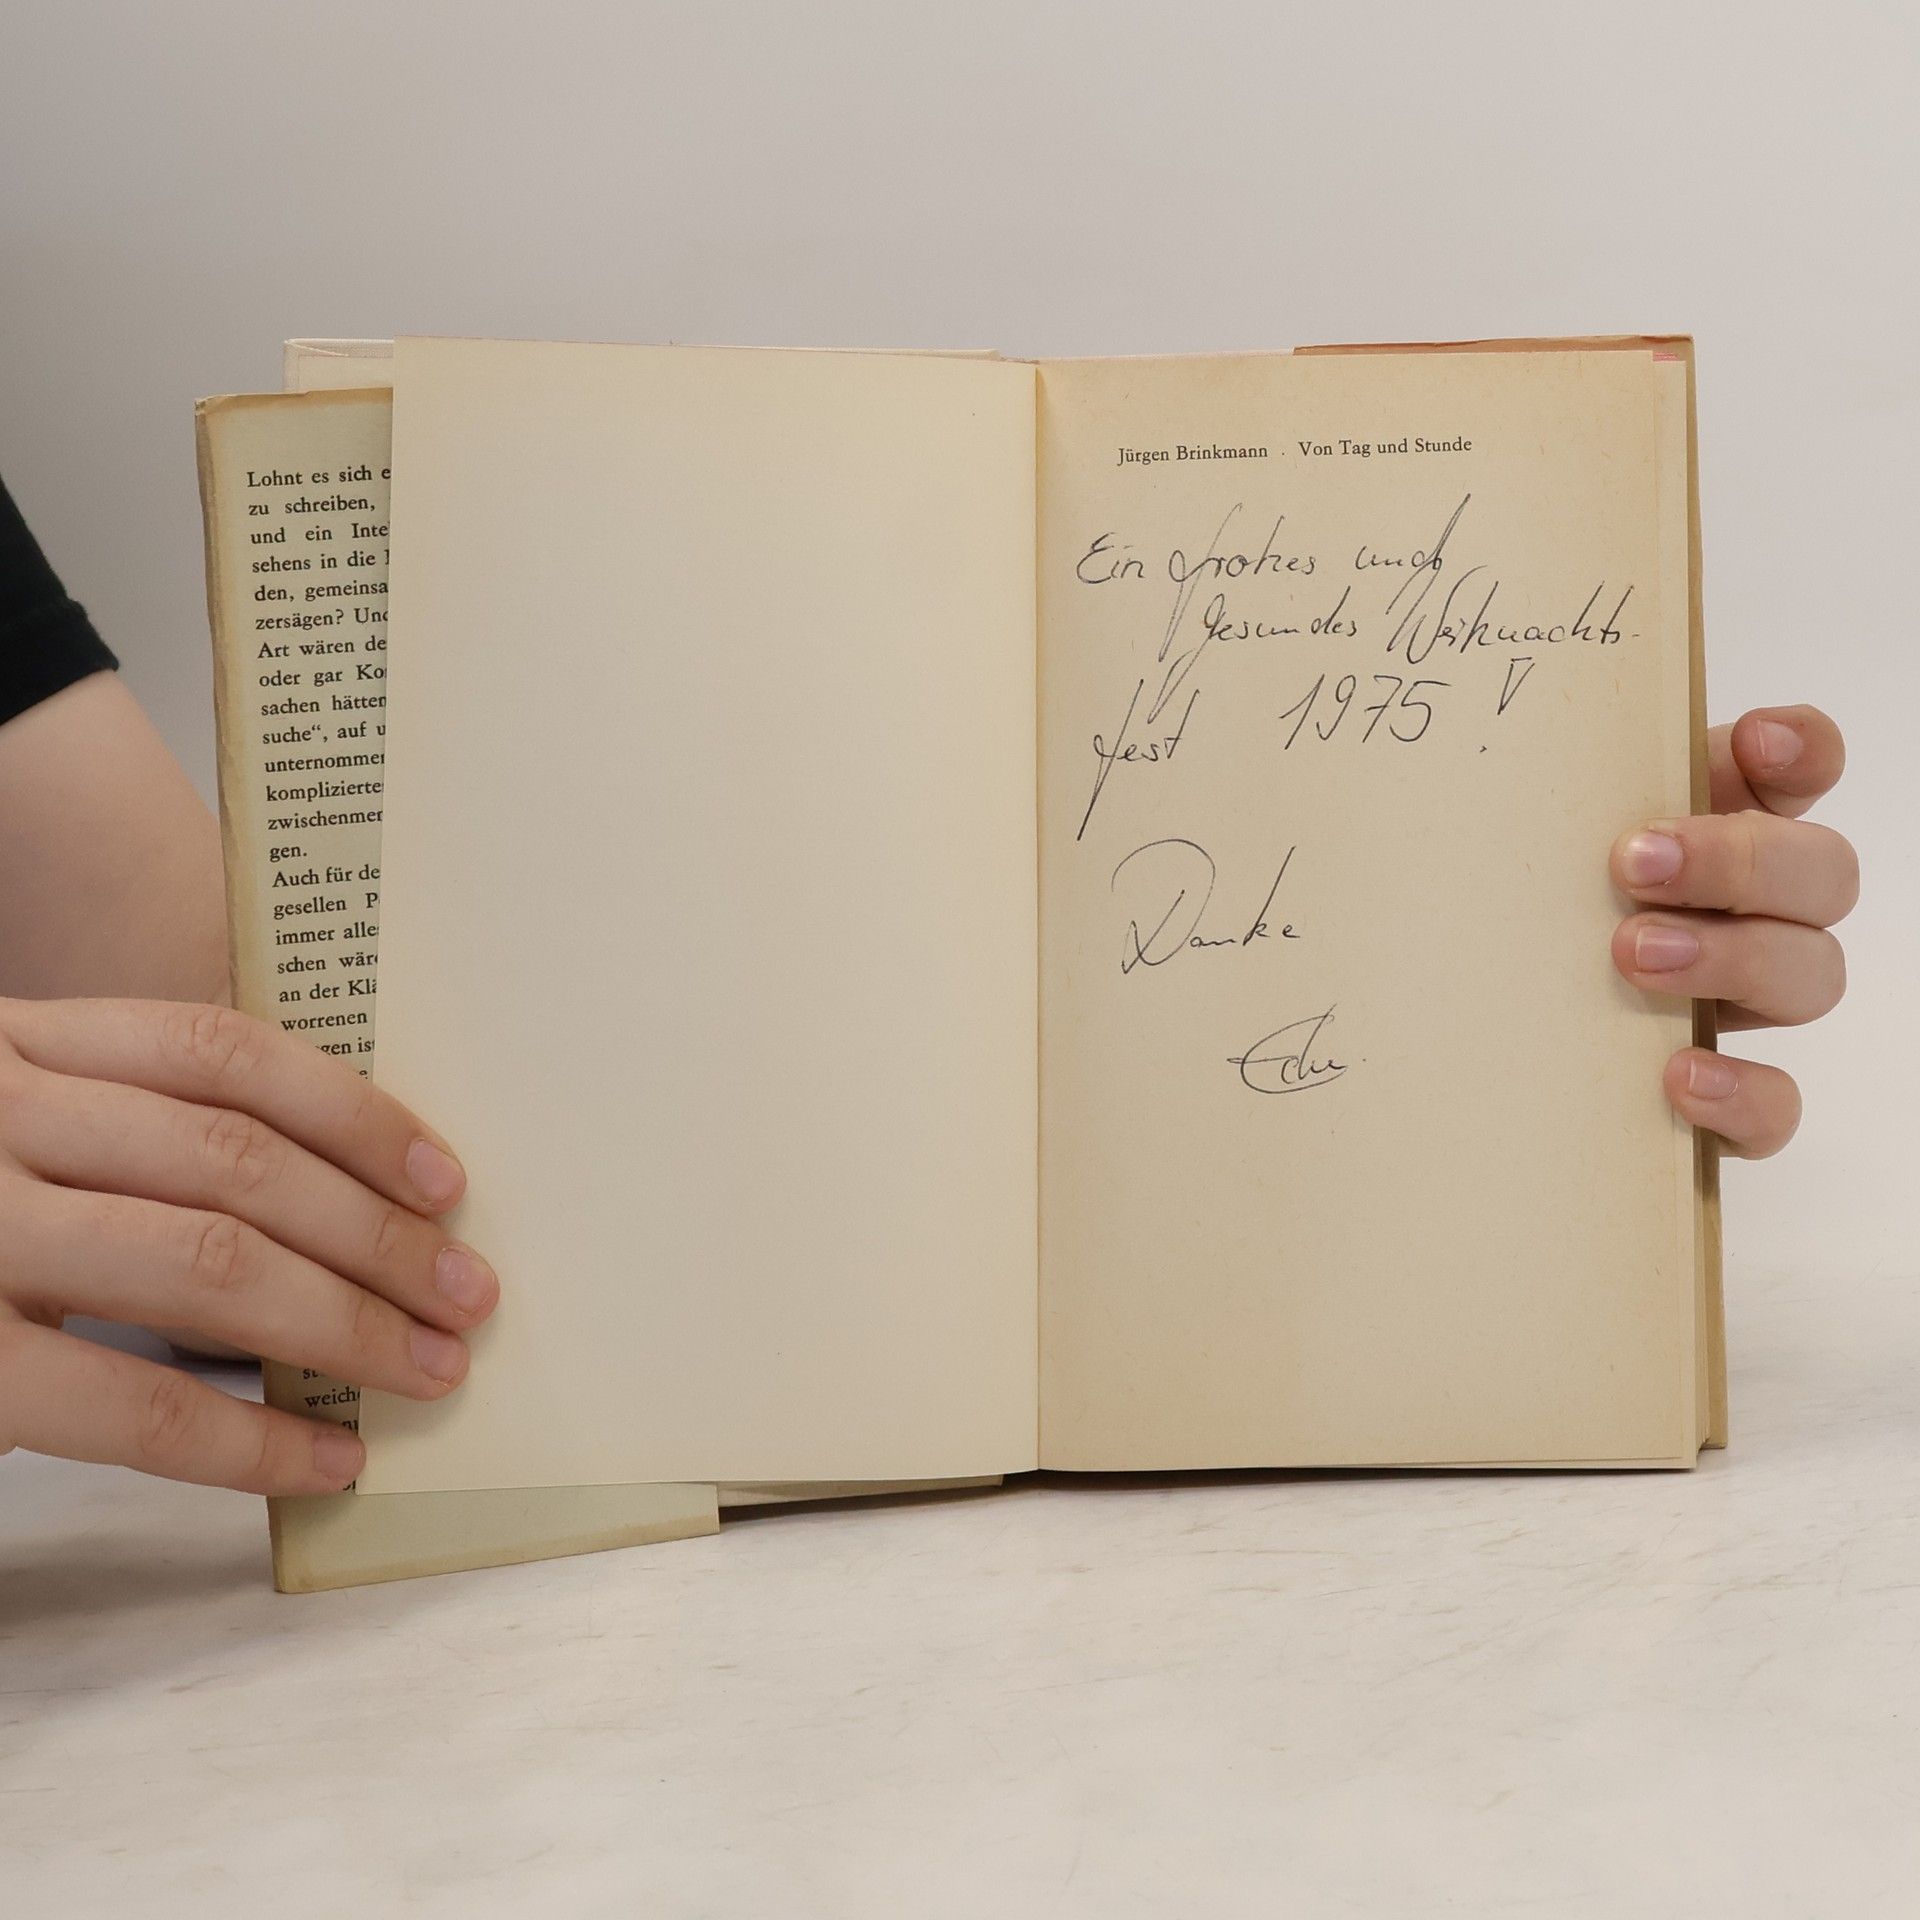 Lohnt es sich e
zu schreiben,
und ein Inte
sehens in die
den, gemeinsa
zersägen? Und
Art wären de
oder gar Ko
sachen hätten
suche“, auf u
unternommen
komplizierte
zwischenmen
gen.
Auch für de
gesellen P
immer alle
schen wäre
an der Klä
worrenen
gen ist
e
weich
Jürgen Brinkmann . Von Tag und Stunde
Ein frohes und
gesundes Weihnachts-
fest 1975!
Danke